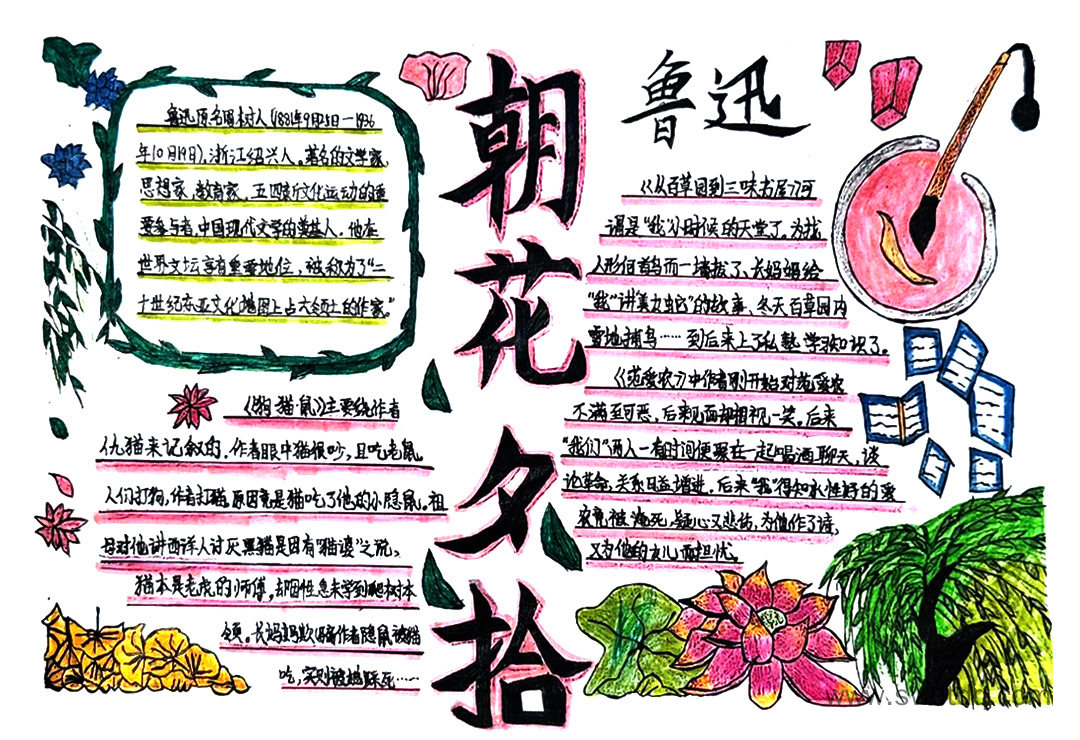 朝花夕拾
鲁迅
鲁迅原名周树人(1881年9月25日—1936
年10月19日),浙江绍兴人。著名的文学家、
思想家、教育家、五四新文化运动的重
要参与者,中国现代文学的奠基人。他在
世界文坛享有重要地位,被称为了“二
十世纪东亚文化地图上占六领土的作家。”
《狗·猫·鼠》主要绕作者
仇猫来记叙的,作者眼中猫很吵,且吃老鼠
人们打狗,作者打猫,原因竟是猫吃了他的小隐鼠。祖
母对他讲西洋人讨厌黑猫是因有“猫婆”之说,
猫本是老虎的师傅,却因性急未学到爬树本
领。长妈妈欺骗作者隐鼠被猫
吃,实则被她踩死……
《从百草园到三味书屋》可
谓是“我”小时候的天堂了,为找
人形何首乌而一墙拔了、长妈妈给
“我”讲美女蛇”的故事、冬天百草园内
雪地捕鸟……到后来上了私塾、学习知识了。
《范爱农》中作者刚开始对范爱农
不满至可恶,后来见面却相视一笑。后来
“我们”两人一有时间便聚在一起喝酒聊天,谈
论革命,关系日益增进,后来“我”得知水性好的爱
农竟被淹死,疑心又悲伤,为他作了诗,
又为他的女儿而担忧。